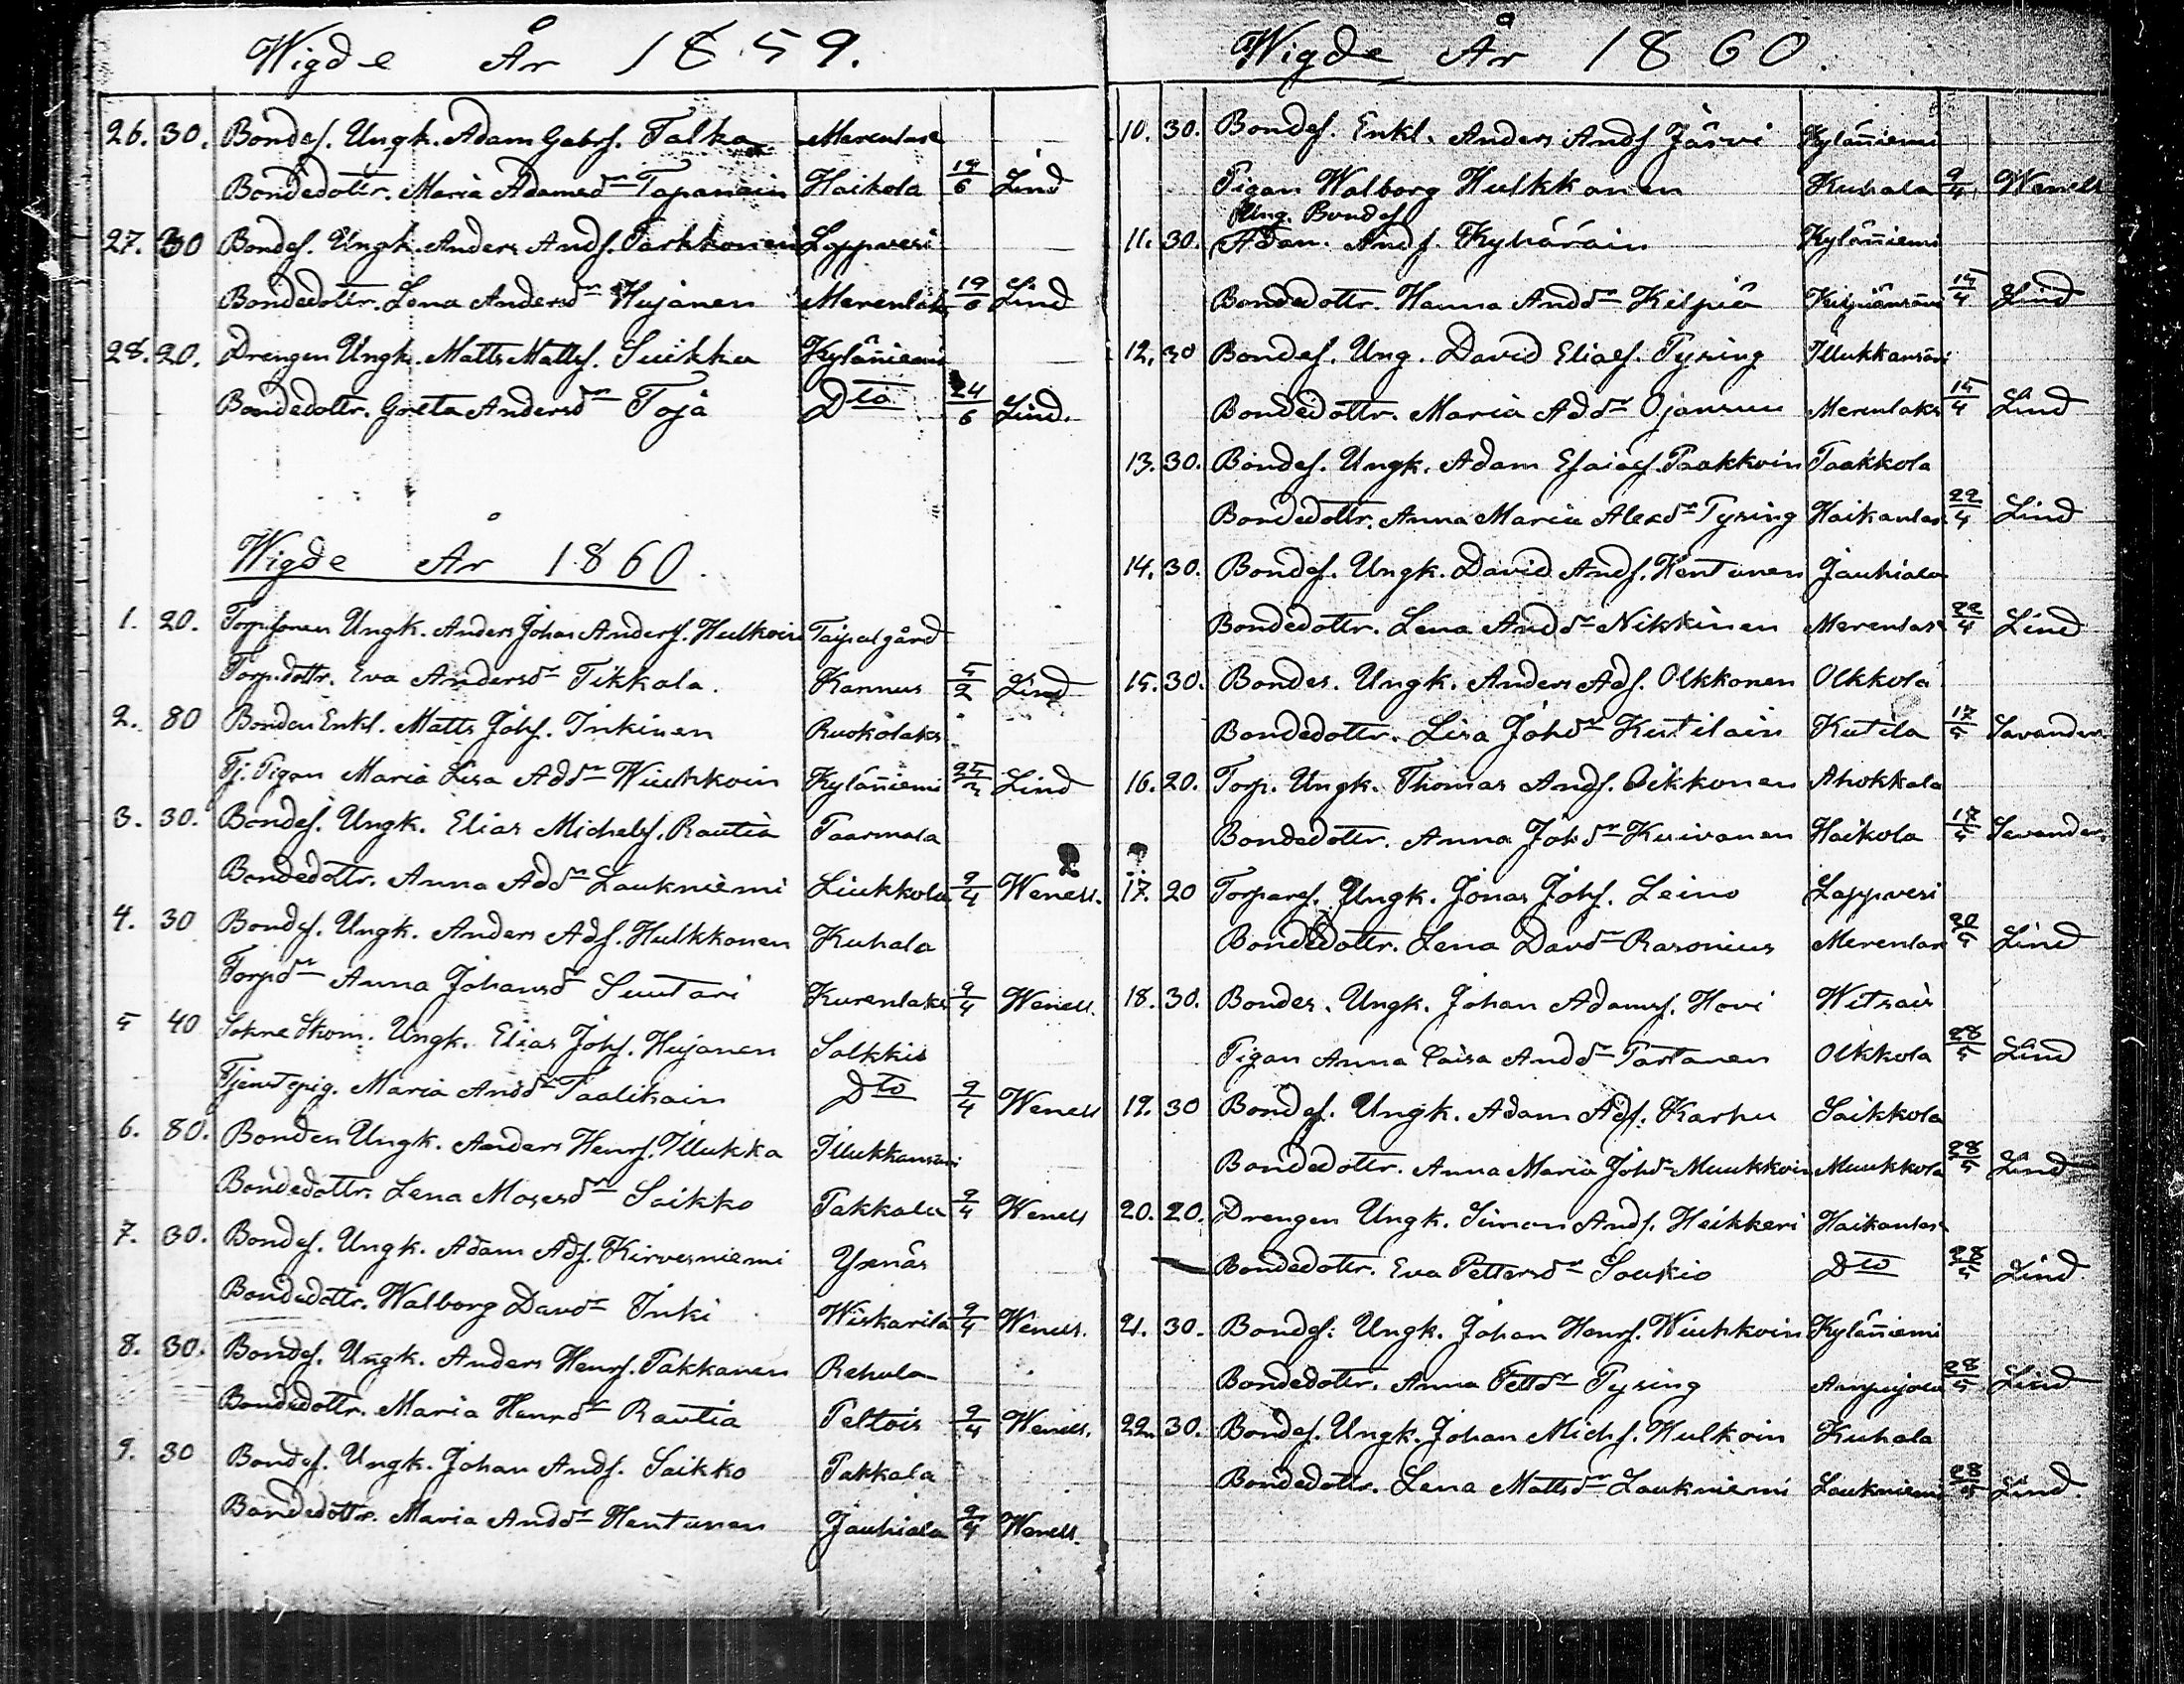 Wigde År 1859.
26. 30. Bondes. Ungk. Adam Gabrs. Talka Merenlaks
Bondedottr. Maria Adamsdr Tapanain Haikola 19/6 Lind
27. 30 Bondes. Ungk. Anders Ands. Parkkonen Lappvesi
Bondedottr. Lena Andersdr Hujanen Merenlaks 19/6 Lind
28. 20. Drengen Ungk. Matts Matts. Suikka Kyläniemi
Bondedottr. Greta Andersdr Toja Dto 24/6 Lind.
Wigde År 1860.
1. 20. Torpsonen Ungk. Anders Johan Anders. Hulkoin Taipalgård
Torp.dottr. Eva Andersdr Tikkala. Kannus 5/2 Lind
2. 80 Bonden Enkl. Matts Johs. Inkinen Ruokolaks
Tj. Pigan Maria Lisa Addr Wiuhkoin Kyläniemi Lind
3. 30. Bondes. Ungk. Elias Michels. Rautia Paarmala
Bondedottr. Anna Addr Laukniemi Liukkola 9/4 Wenell.
4. 30 Bondes. Ungk. Anders Ads. Hulkkonen Kuhala
Torpdr Anna Johansdr Suutari Kurenlaks 9/4 Wenell.
5 40 Sokne Skom. Ungk. Elias Johs. Hujanen Solkkis
Tjenstepig. Maria Anddr Taalikain Dto 9/4 Wenell
6. 80. Bonden Ungk. Anders Henrs. Illukka Illukkansaari
Bondedottr. Lena Mosesdr Saikko Pakkala 9/4 Wenell
7. 30. Bondes. Ungk. Adam Ads. Kirvesniemi Yxnäs
Bondedottr. Walborg Davdr Inki Wiskarila 9/4 Wenell.
8. 30. Bondes. Ungk. Anders Henrs. Pakkanen Rehula
Bondedottr. Maria Henrdr Rautia Peltois 9/4 Wenell.
9. 30 Bondes. Ungk. Johan Ands. Saikko Pakkala
Bondedottr. Maria Anddr Hentunen Jauhiala 9/4 Wenell.
Wigde År 1860.
10. 30. Bondes. Enkl. Anders Ands Järvi Kyläniemi
Pigan Walborg Hulkkonen Kuhala 9/4 Wenell
Ung. Bondes
11. 30. Adam. Ands. Kyhäräin Kyläniemi
Bondedottr. Hanna Anddr Kilpiä 15/4 Lind
12. 30 Bondes. Ung. David Elias. Tysing Illukkansaari
Bondedottr. Maria Addr Ojansuu Merenlaks 15/4 Lind
13. 30. Bondes. Ungk. Adam Esaias. Paakkoin Paakkola
Bondedottr. Anna Maria Alexdr Tysing Haikanlaks 22/4 Lind
14. 30. Bondes. Ungk. David Ands. Hentunen Jauhiala
Bondedottr. Lena Anddr Nikkinen Merenlaks 22/4 Lind
15. 30. Bondes. Ungk. Anders Ads. Olkkonen Olkkola
Bondedottr. Lisa Johdr Kutilain Kutila 17/5 Savander
16. 20. Torp. Ungk. Thomas Ands. Oikkonen Ahokkala
Bondedottr. Anna Johdr Kuivanen Haikola 17/5 Savander
17. 20 Torpares. Ungk. Jonas Johs. Leino Lappvesi
Bondedottr. Lena Davdr Rasonius Merenlaks 20/5 Lind
18. 30. Bondes. Ungk. Johan Adams. Hovi Witsais
Pigan Anna Caisa Anddr Partanen Olkkola 28/5 Lind
19. 30 Bondes. Ungk. Adam Ads. Karhu Saikkola
Bondedottr. Anna Maria Johdr Muukkoin Muukkola 28/5 Lind
20. 20. Drengen Ungk. Simon Ands. Heikkeri Haikanlaks
Bondedottr. Eva Pettersdr Soukio Dto 28/5 Lind
21. 30. Bondes. Ungk. Johan Henrs. Wiuhkoin Kyläniemi
Bondedottr. Anna Pettdr Tysing Ampujala 28/5 Lind
22. 30. Bondes. Ungk. Johan Michs. Hulkoin Kuhala
Bondedottr. Lena Mattsdr Laukniemi Laukniemi 28/5 Lind.